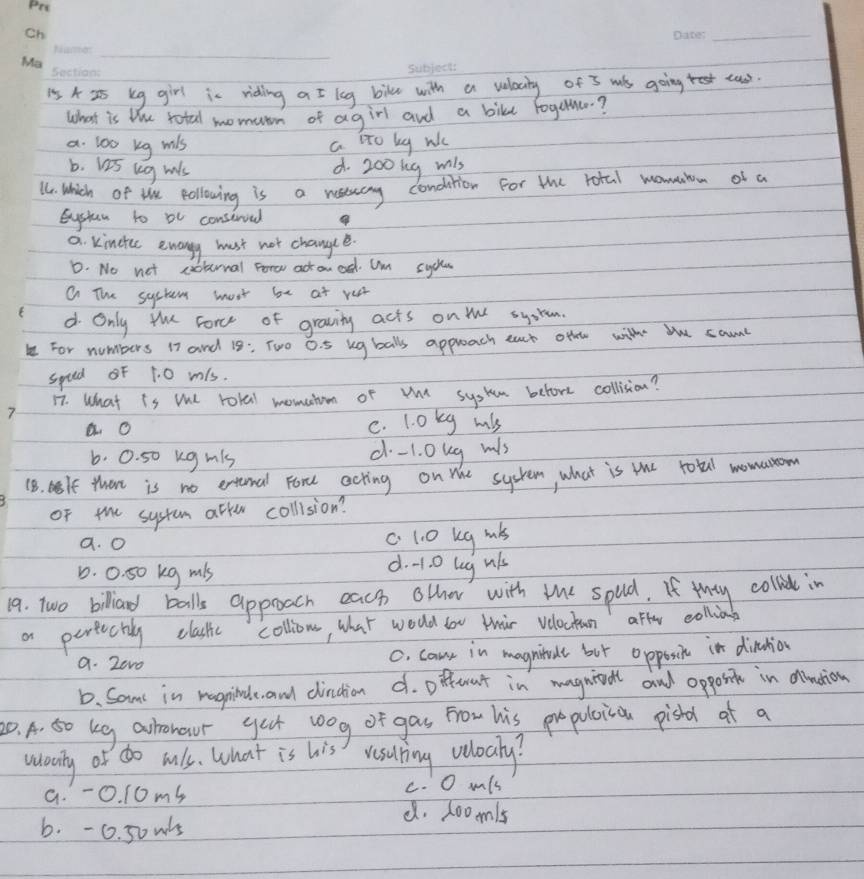 Pre
Ch
Date:
Name:
Ma
Section: Subject:
15. A 25 kg girl is riding a 5 kg bike with a velocity of 5 m/s going east.
What is the total momentum of a girl and a bike together?
a. 100 kg m/s
b. 125 kg m/s
c. 150 kg m/s
d. 200 kg m/s
16. Which of the following is a necessary condition for the total momentum of a
system to be conserved
a. Kinetic energy must not change.
b. No net external force act on system
c. The system must be at rest
d. Only the force of gravity acts on the system.
For numbers 17 and 18: Two 0.5 kg balls approach each other with the same
speed of 1.0 m/s.
7
17. What is the total momentum of the system before collision?
a. 0
b. 0.50 kg m/s
c. 1.0 kg m/s
d. -1.0 kg m/s
18. If there is no external force acting on the system, what is the total momentum
of the system after collision?
a. 0
b. 0.50 kg m/s
c. 1.0 kg m/s
d. -1.0 kg m/s
19. Two billiard balls approach each other with the speed. If they collide in
a perfectly elastic collision, what would be their velocities after collision
a. zero
b. Same in magnitude and direction
c. same in magnitude but opposite in direction
d. Different in magnitude and opposite in direction
20. A. 50 kg astronaut 100g of gas from his propulsion pistol at a
velocity of 50 m/s. What is his resulting velocity?
a. -0.10 m/s
b. -0.50 m/s
c. 0 m/s
d. 100 m/s